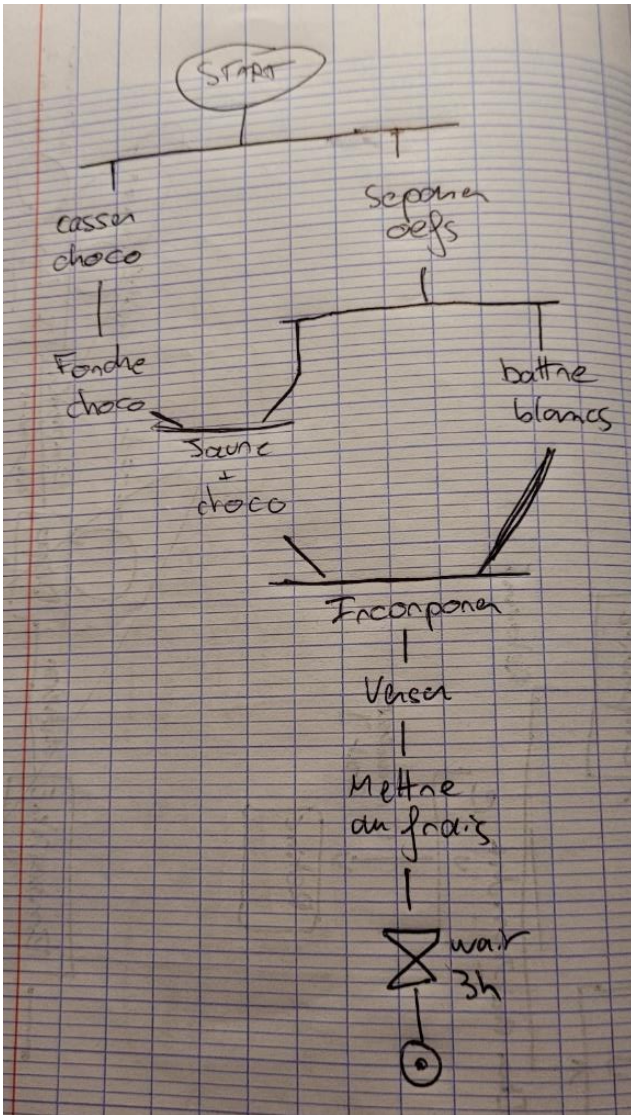 START
casser
choco
Separer
oefs
Fondre
choco
battre
blancs
Jaune
+
choco
Incorporer
Verser
Mettre
au frais
wait
3h